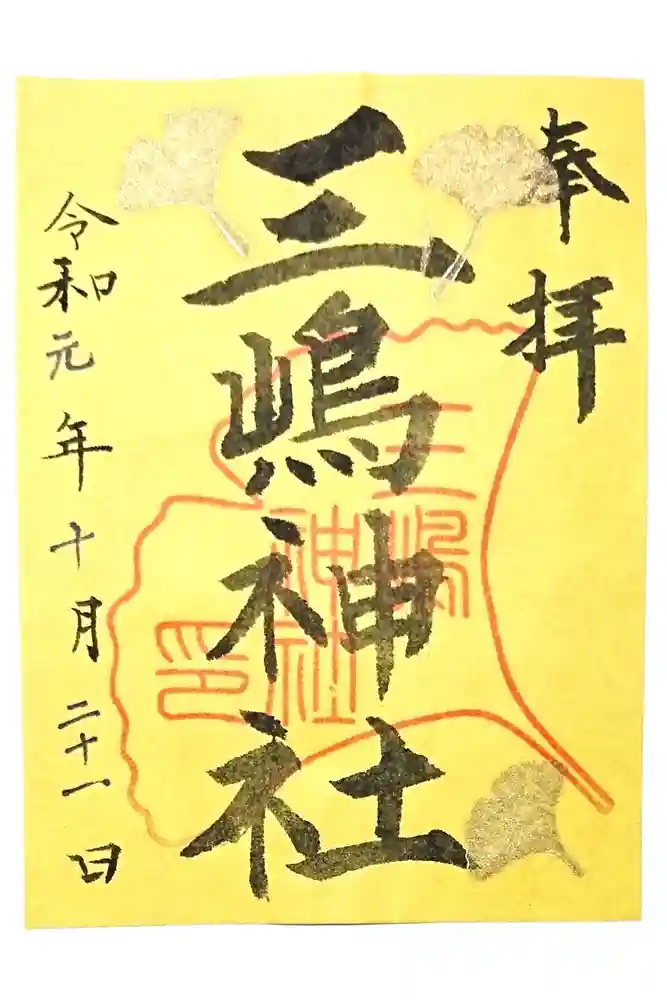 奉拝
三嶋神社
三嶋
神社
印
令和元年十月二十一日